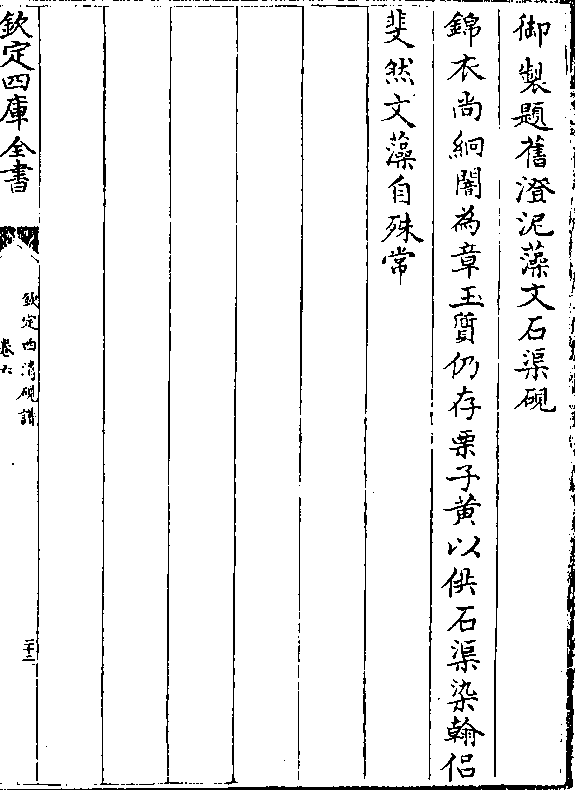 御製題舊澄泥藻文石渠硯
錦衣尚絅闇為章玉質仍存栗子黄以供石渠染翰侣
斐然文藻自殊常
欽定四庫全書
欽定西清硯譜
卷六
二十二